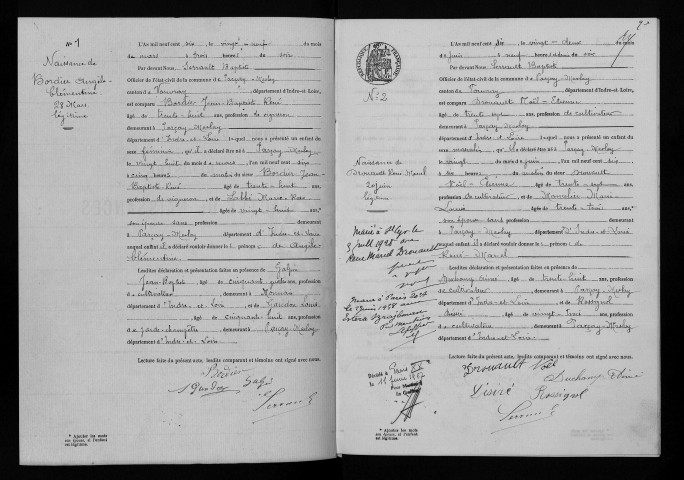 No 1
Naissance de
Bordier Angèle
Clémentine
28 Mars
légitime
L'An mil neuf cent six, le vingt-neuf du mois
de mars à trois heures du soir
Par devant Nous Serrault Baptiste
Officier de l'état civil de la commune de Parçay-Meslay
canton de Vouvray, département d'Indre-et-Loire,
est comparu Bordier Jean-Baptiste René
âgé de trente-huit ans, profession de vigneron
demeurant à Parçay-Meslay
département d'Indre et Loire, lequel nous a présenté un enfant du
sexe féminin qu'il a déclaré être né à Parçay-Meslay
le vingt huit du mois de mars, l'an mil neuf cent six
à cinq heures du matin du sieur Bordier Jean-
Baptiste René âgé de trente-huit ans,
profession de vigneron, et de Labbé Marie-Rose
âgée de vingt-huit ans, *
son épouse sans profession demeurant à
Parçay-Meslay département d'Indre-et-Loire
auquel enfant il a déclaré vouloir donner les prénoms de Angèle
Clémentine
Lesdites déclaration et présentation faites en présence de
Jean-Baptiste âgé de cinquante ans, profession
de cultivateur demeurant à
département d'Indre-et-Loire et de
âgé de cinquante huit ans, profession
de garde-champêtre demeurant à Parçay-Meslay
département d'Indre-et-Loire
Lecture faite du présent acte, lesdits comparant et témoins ont signé avec nous.
Bordier
* Ajouter les mots
son épouse, si l'enfant
est légitime.
2
RÉPUBLIQUE FRANÇAISE
No 2
Naissance de
Drouault René Marcel
20 Juin
légitime
L'An mil neuf cent six, le vingt-deux du mois
de juin à neuf heures du soir
Par devant Nous Serrault Baptiste
Officier de l'état civil de la commune de Parçay-Meslay
canton de Vouvray, département d'Indre-et-Loire,
est comparu Drouault Noël-Etienne
âgé de trente-sept ans, profession de cultivateur
demeurant à Parçay-Meslay
département d'Indre et Loire, lequel nous a présenté un enfant du
sexe masculin qu'il a déclaré être né à Parçay-Meslay
le vingt du mois de juin, l'an mil neuf cent six
à six heures du matin du sieur Drouault
Noël-Etienne âgé de trente-sept ans,
profession de cultivateur, et de Marie-
Louise âgée de trente-trois ans, *
son épouse sans profession demeurant à
Parçay-Meslay département d'Indre-et-Loire
auquel enfant il a déclaré vouloir donner les prénoms de
René-Marcel
Lesdites déclaration et présentation faites en présence de
Duchamp âgé de trente-huit ans, profession
de cultivateur demeurant à Parçay-Meslay
département d'Indre-et-Loire et de Rossignol
Désiré âgé de vingt-trois ans, profession
de cultivateur demeurant à Parçay-Meslay
département d'Indre-et-Loire
Lecture faite du présent acte, lesdits comparant et témoins ont signé avec nous.
Marié à
3 juillet 1928 avec
Marié à Paris 20e
le 1938 avec
Paris XX
le 11 juin 1957
Drouault Noël
Duchamp
Désiré Rossignol
* Ajouter les mots
son épouse, si l'enfant
est légitime.